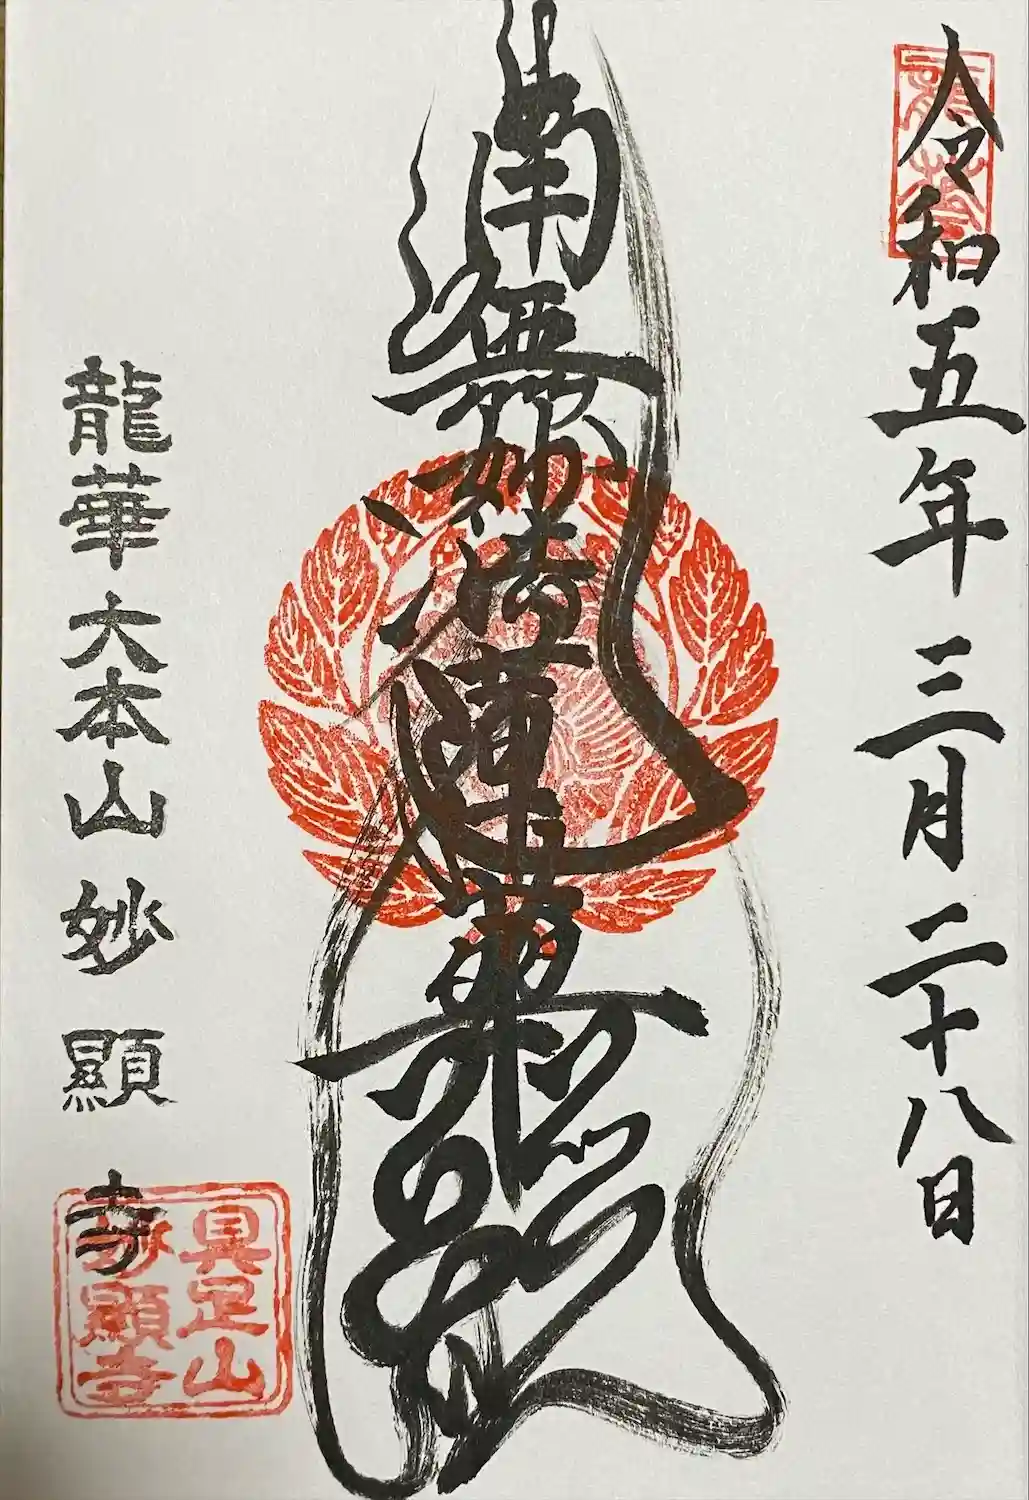 令和五年三月二十八日
南無妙法蓮華経
龍華大本山妙顯寺
具足山
妙顯寺